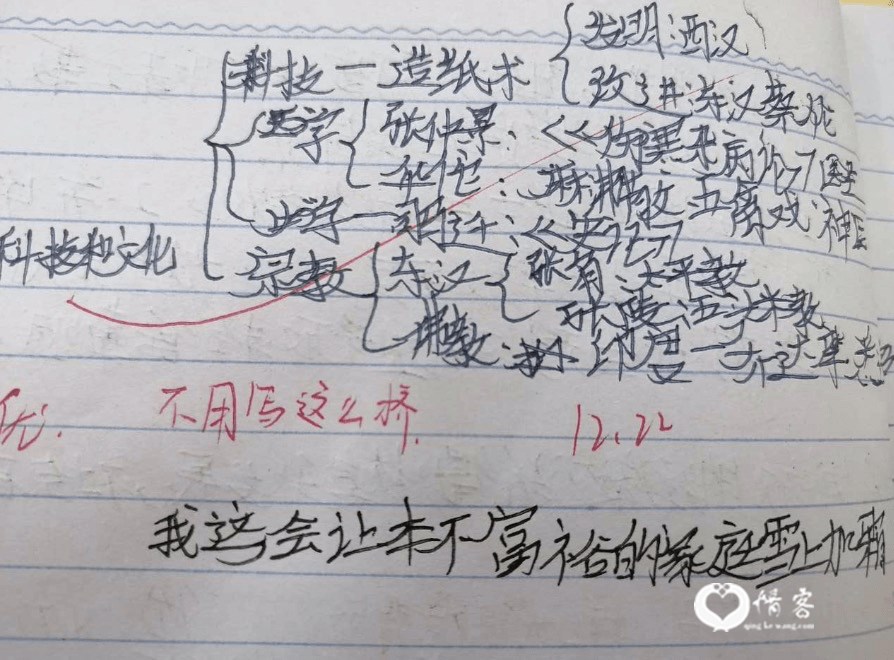 科技和文化
科技一造纸术
发明:西汉
改进:东汉蔡伦
医学
张仲景:《伤寒杂病论》医圣
华佗:麻沸散 五禽戏 神医
史学一司马迁:《史记》
宗教
东汉
张角:太平教
张陵:五斗米教
佛教: 印度一乔达摩
优.
不用写这么挤.
12.22
我这会让本不富裕的家庭雪上加霜
情客
qing ke wang.com